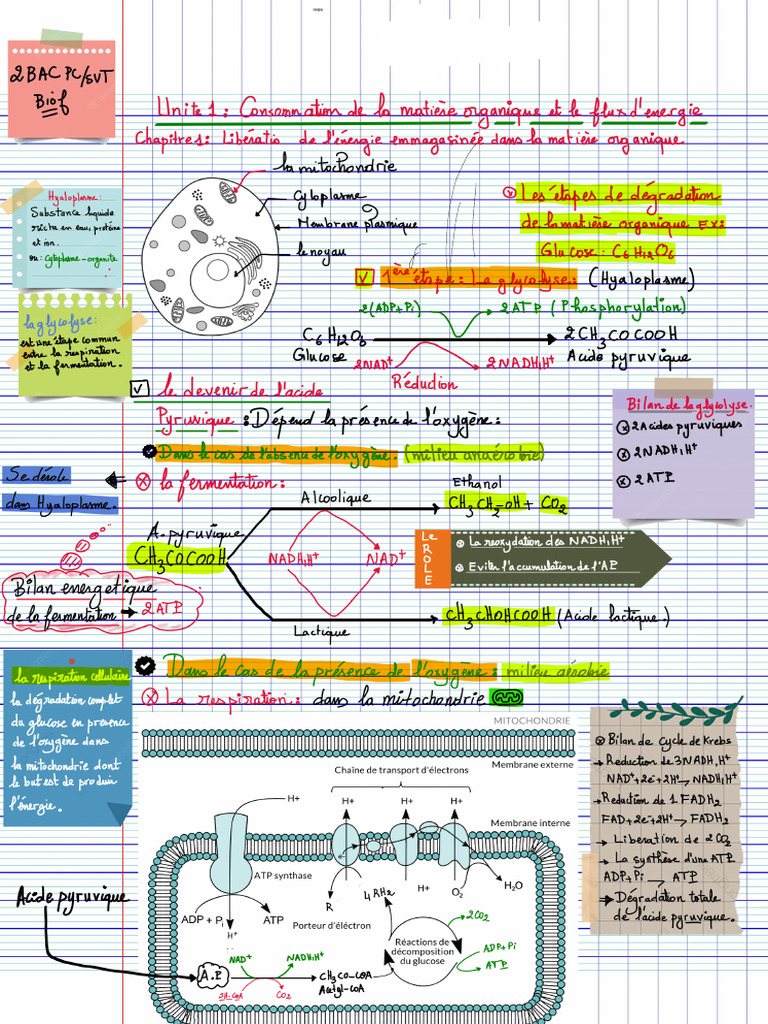 2BAC PC/SVT
Biof
Unité 1 : Consommation de la matière organique et le flux d'energie
Chapitre 1 : Libératio de l'énergie emmagasinée dans la matière organique
la mitochondrie
Cytoplasme
Membrane plasmique
le noyau
Hyaloplasme :
Substance liquide
riche en eau, protéine
et ion.
ou : cytoplasme - organite
Les étapes de dégradation
de la matière organique Ex :
Glucose : C6H12O6
1ère étape : La glycolyse : (Hyaloplasme)
2(ADP+Pi) 2ATP (Phosphorylation)
C6H12O6 2CH3COCOOH
Glucose Acide pyruvique
2NAD+ 2NADH,H+
Réduction
la glycolyse :
est une étape commun
entre la respiration
et la fermentation.
le devenir de l'acide
Pyruvique : Dépend la présence de l'oxygène :
Bilan de la glycolyse.
2Acides pyruviques
2NADH,H+
2ATP
Dans le cas de l'absence de l'oxygène. (milieu anaérobie)
la fermentation :
Se dérole
dans Hyaloplasme.
Alcoolique
Ethanol
CH3CH2-OH + CO2
A. pyruvique
CH3COCOOH
NADH,H+ NAD+
Le
ROLE
La reoxydation des NADH,H+
Eviter l'accumulation de l'AP
Bilan energetique
de la fermentation → 2ATP
Lactique
CH3CHOHCOOH (Acide lactique.)
Dans le cas de la présence de l'oxygène : milieu aérobie
La respiration : dans la mitochondrie
la respiration cellulaire
la dégradation complet
du glucose en presence
de l'oxygène dans
la mitochondrie dont
le but est de produin
l'énergie.
MITOCHONDRIE
Membrane externe
Chaîne de transport d'électrons
H+
H+ H+ H+
Membrane interne
ATP synthase
H2O
O2
H+
R
4RH2
ADP + Pi ATP
H+
Porteur d'éléctron
Réactions de
décomposition
du glucose
2CO2
ADP+Pi
ATP
Acide pyruvique
A.P
NAD+ NADH,H+
CO2
CH3CO-COA
Acétyl-CoA
Bilan de cycle de Krebs
→ Reduction de 3NADH,H+
NAD++2e-+2H+→NADH,H+
→ Reduction de 1FADH2
FAD+2e-+2H+→FADH2
→ Liberation de 2CO2
→ La synthèse d'une ATP
ADP+Pi → ATP
→ Dégradation totale
de l'acide pyruvique.